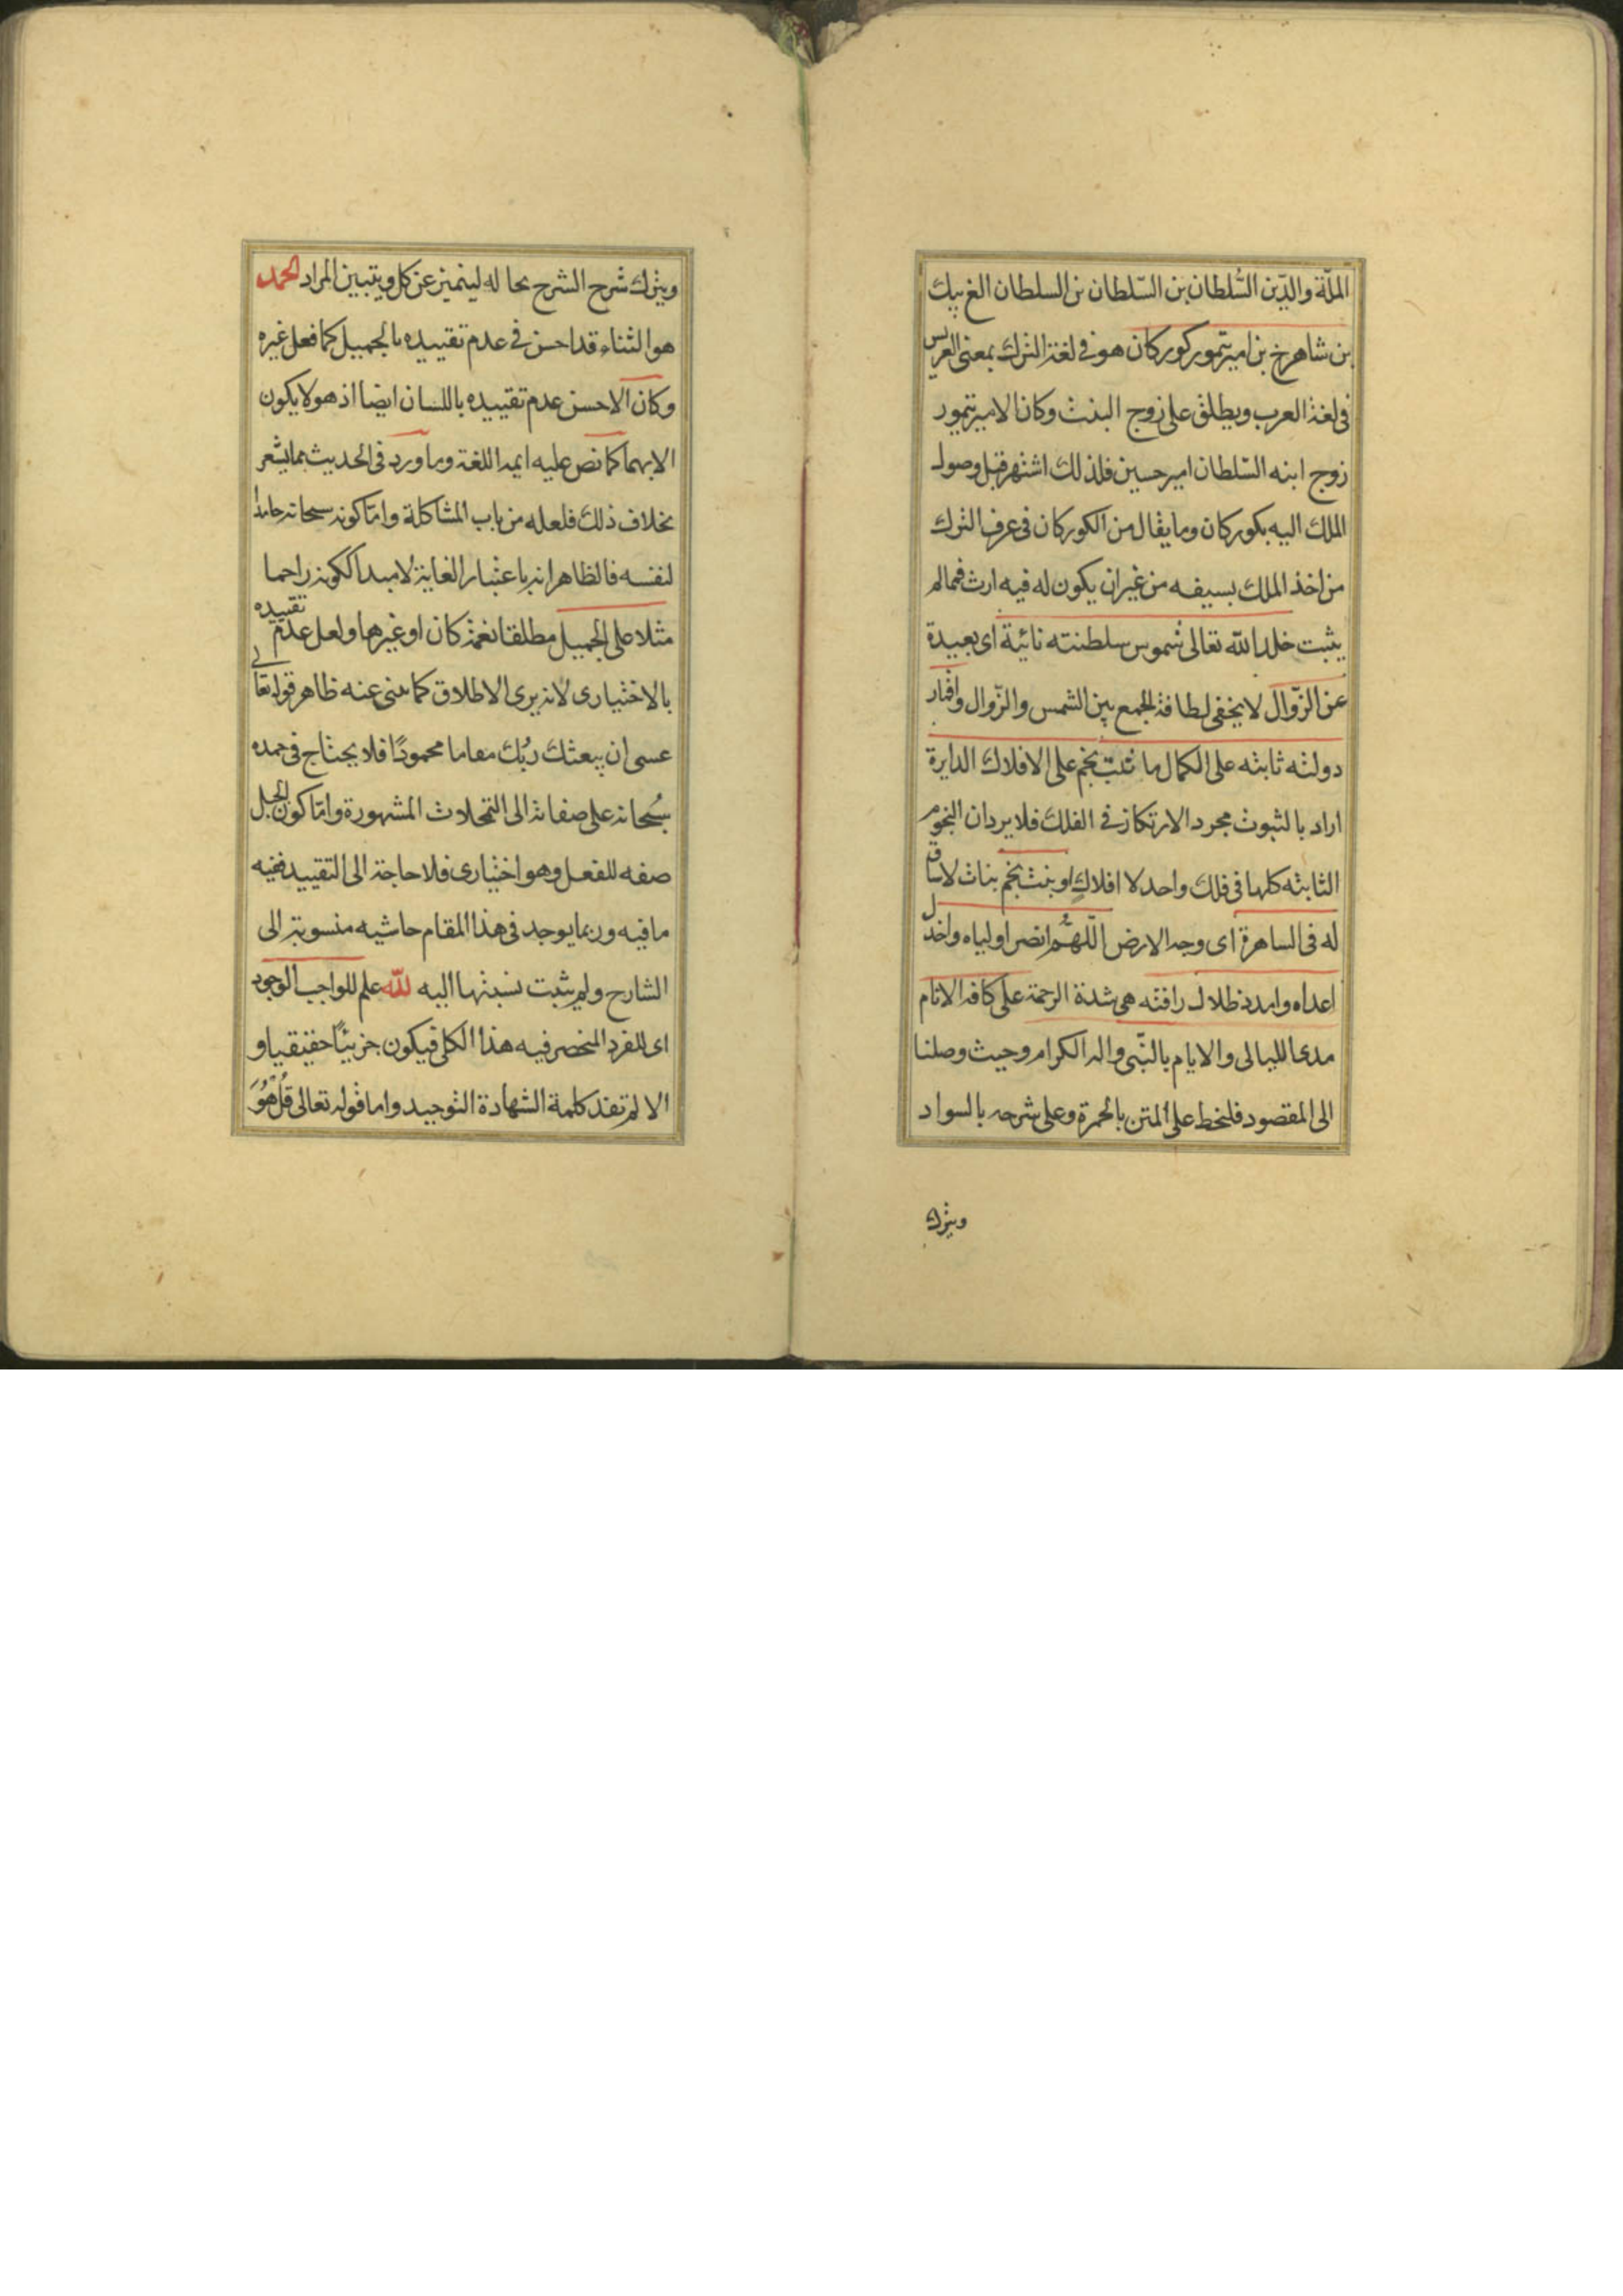 الملّة والدّين السُّلطان بن السّلطان بن السلطان الغ بيك
بن شاهرخ بن امير تيمور كوركان هو فى لغة الترك بمعنى العريس
فى لغة العرب ويطلق على زوج البنت وكان الامير تيمور
زوج ابنه السّلطان امير حسين فلذلك اشتهر قبل وصول
الملك اليه بكوركان وما يقال من الكوركان فى عرف الترك
من اخذ الملك بسيفه من غير ان يكون له فيه ارث فممالم
يثبت خلد الله تعالى شموس سلطنته نائية اى بعيدة
عن الزّوال لا يخفى لطافة الجمع بين الشمس والزّوال واقمار
دولته ثابته على الكمال ما ثبت نجم على الافلاك الدايرة
اراد بالثبوت مجرد الارتكاز فى الفلك فلا يرد ان النجوم
الثابته كلها فى فلك واحد لا افلاك او بنت نجم بنات لا ساق
له فى الساهرة اى وجه الارض اللّهمّ انصر اولياه واخذل
اعداه وامدد ظلال رافته هى شدة الرحمة على كافه الانام
مدى الليالى والايام بالنّبى واله الكرام وحيث وصلنا
الى المقصود فلنخط على المتن بالحمرة وعلى شرحه بالسواد
ويترك
ويترك شرح الشرح بحاله ليتميز عن كل ويتبين المراد الحمد
هو الثناء قد احسن فى عدم تقييده بالجميل كما فعل غيره
وكان الاحسن عدم تقييده باللسان ايضا اذ هو لا يكون
الا بهما كما نص عليه ايمه اللغة وما ورد فى الحديث بما يشعر
بخلاف ذلك فلعله من باب المشاكلة وامّا كونه سبحانه حامدا
لنفسه فالظاهر انه باعتبار الغاية لا مبدا الكونه راحما
مثلا على الجميل مطلقا نعمة كان او غيرها ولعل عدم تقييده
بالاختيارى لانه يرى الاطلاق كما ينبى عنه ظاهر قوله تعالى
عسى ان يبعثك ربّك مقاما محمودًا فلا يحتاج فى حمده
سُبحانه على صفاته الى التمحلات المشهورة وامّا كون الجميل
صفه للفعل وهو اختيارى فلا حاجة الى التقييد ففيه
ما فيه وربما يوجد فى هذا المقام حاشيه منسوبة الى
الشارح ولم يثبت نسبتها اليه لله علم للواجب الوجود
اى للفرد المنحصر فيه هذا الكلى فيكون جزئيًا حقيقيا و
الا لم تفد كلمة الشهادة التوحيد واما قوله تعالى قُل هُوَ